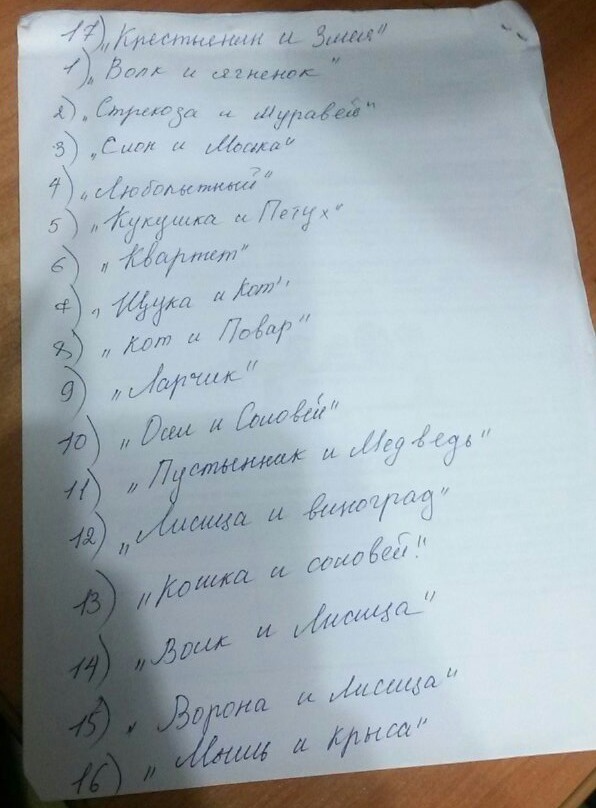 17) „Крестьенин и Змея"
1) „Волк и ягненок"
2) „Стрекоза и Муравей"
3) „Слон и Моська"
4) „Любопытный"
5) „Кукушка и Петух"
6) „Квартет"
7) „Щука и Кот"
8) „Кот и Повар"
9) „Ларчик"
10) „Осел и Соловей"
11) „Пустынник и Медведь"
12) „Лисица и виноград"
13) „Кошка и соловей"
14) „Волк и Лисица"
15) „Ворона и Лисица"
16) „Мышь и крыса"